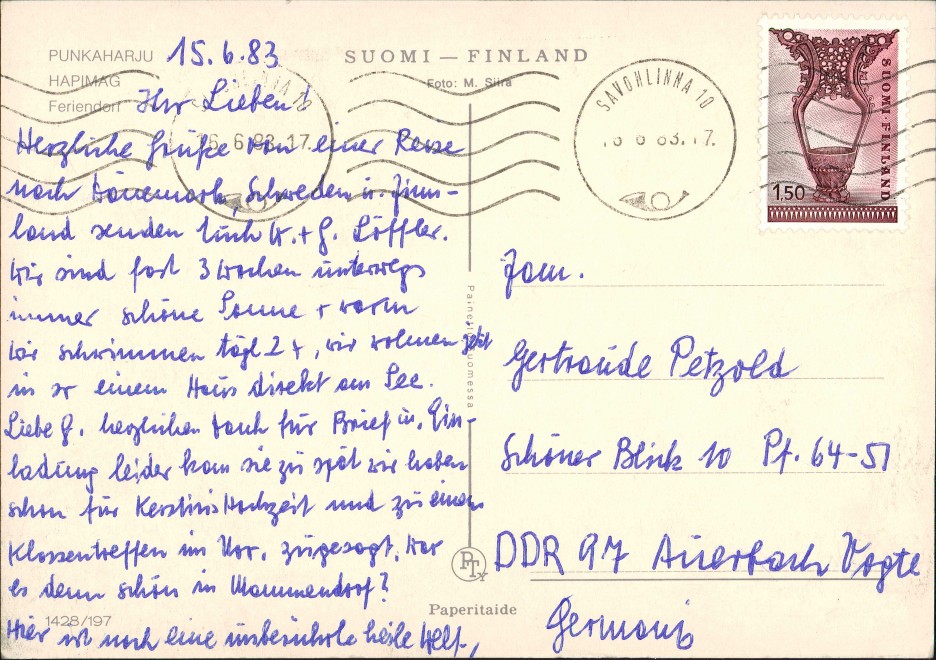 PUNKAHARJU 15.6.83
HAPIMAG
Feriendorf
Ihr Lieben!
Herzliche Grüße von einer Reise
nach Dänemark, Schweden u. Finn-
land senden Euch W. + G. Löffler.
Wir sind fast 3 Wochen unterwegs
immer schöne Sonne + warm
wir schwimmen tägl 2 x, wir wohnen jetzt
in so einem Haus direkt am See.
Liebe G. herzlichen Dank für Brief u. Ein-
ladung leider kam sie zu spät wir haben
schon für Kerstins Hochzeit und zu einem
Klassentreffen im zugesagt. War
es denn schön in Mammendorf?
Hier ist noch eine unberührte heile Welt,
1428/197
SUOMI — FINLAND
Foto: M. Siira
SAVONLINNA 10
6 83.17.
SAVONLINNA 10
6 83.17.
SUOMI·FINLAND
1,50
Painettu Suomessa
PT
Paperitaide
Fam.
Gertraude Petzold
Schöner Blick 10 Pf. 64-51
DDR 97 Auerbach Vogtl
Germany